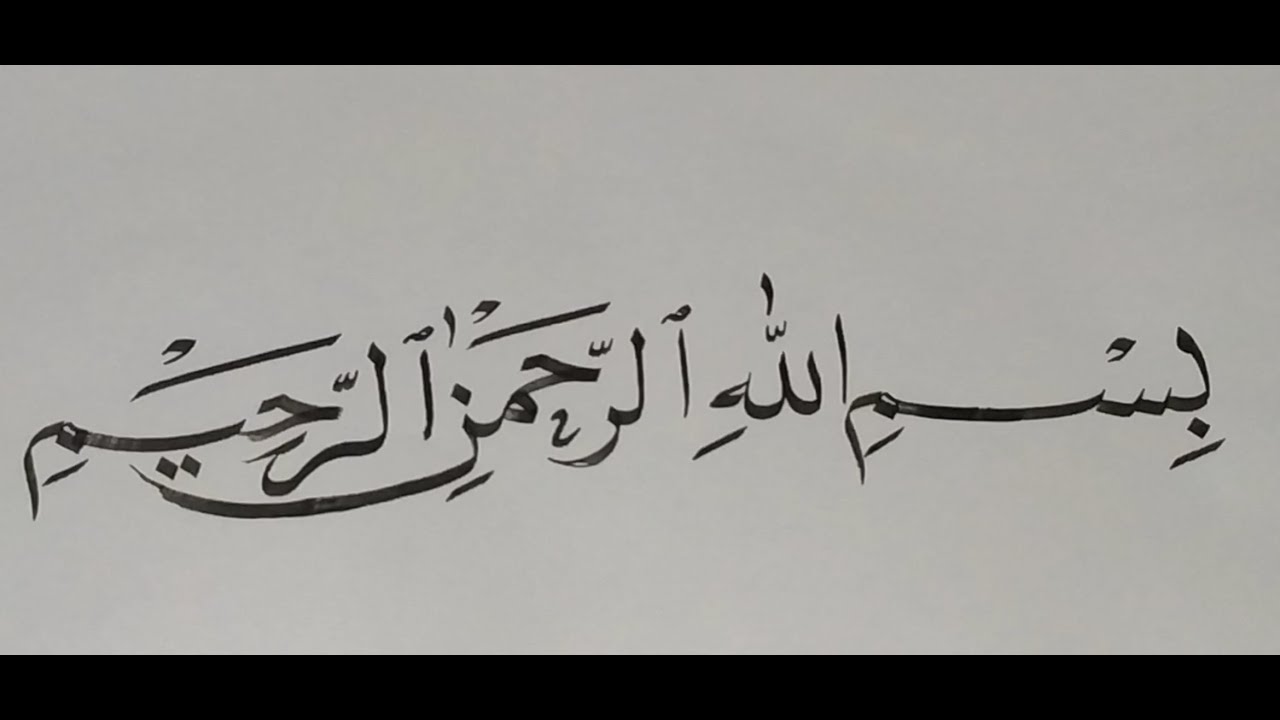 بِسْمِ اللّٰهِ ٱلرَّحْمٰنِ ٱلرَّحِيْمِ